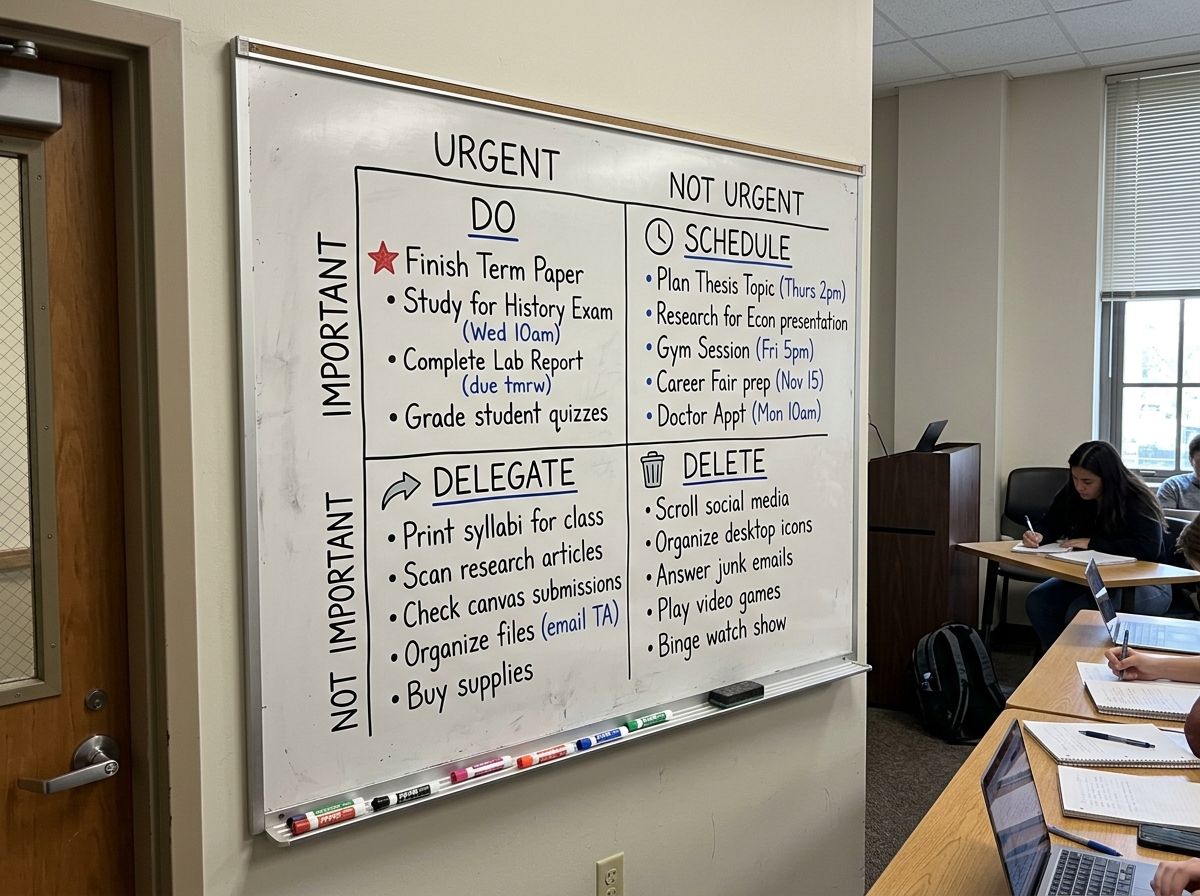 URGENT
NOT URGENT
IMPORTANT
DO
Finish Term Paper
• Study for History Exam
(Wed 10am)
• Complete Lab Report
(due tmrw)
• Grade student quizzes
SCHEDULE
• Plan Thesis Topic (Thurs 2pm)
• Research for Econ presentation
• Gym Session (Fri 5pm)
• Career Fair prep (Nov 15)
• Doctor Appt (Mon 10am)
NOT IMPORTANT
DELEGATE
• Print syllabi for class
• Scan research articles
• Check canvas submissions
• Organize files (email TA)
• Buy supplies
DELETE
• Scroll social media
• Organize desktop icons
• Answer junk emails
• Play video games
• Binge watch show